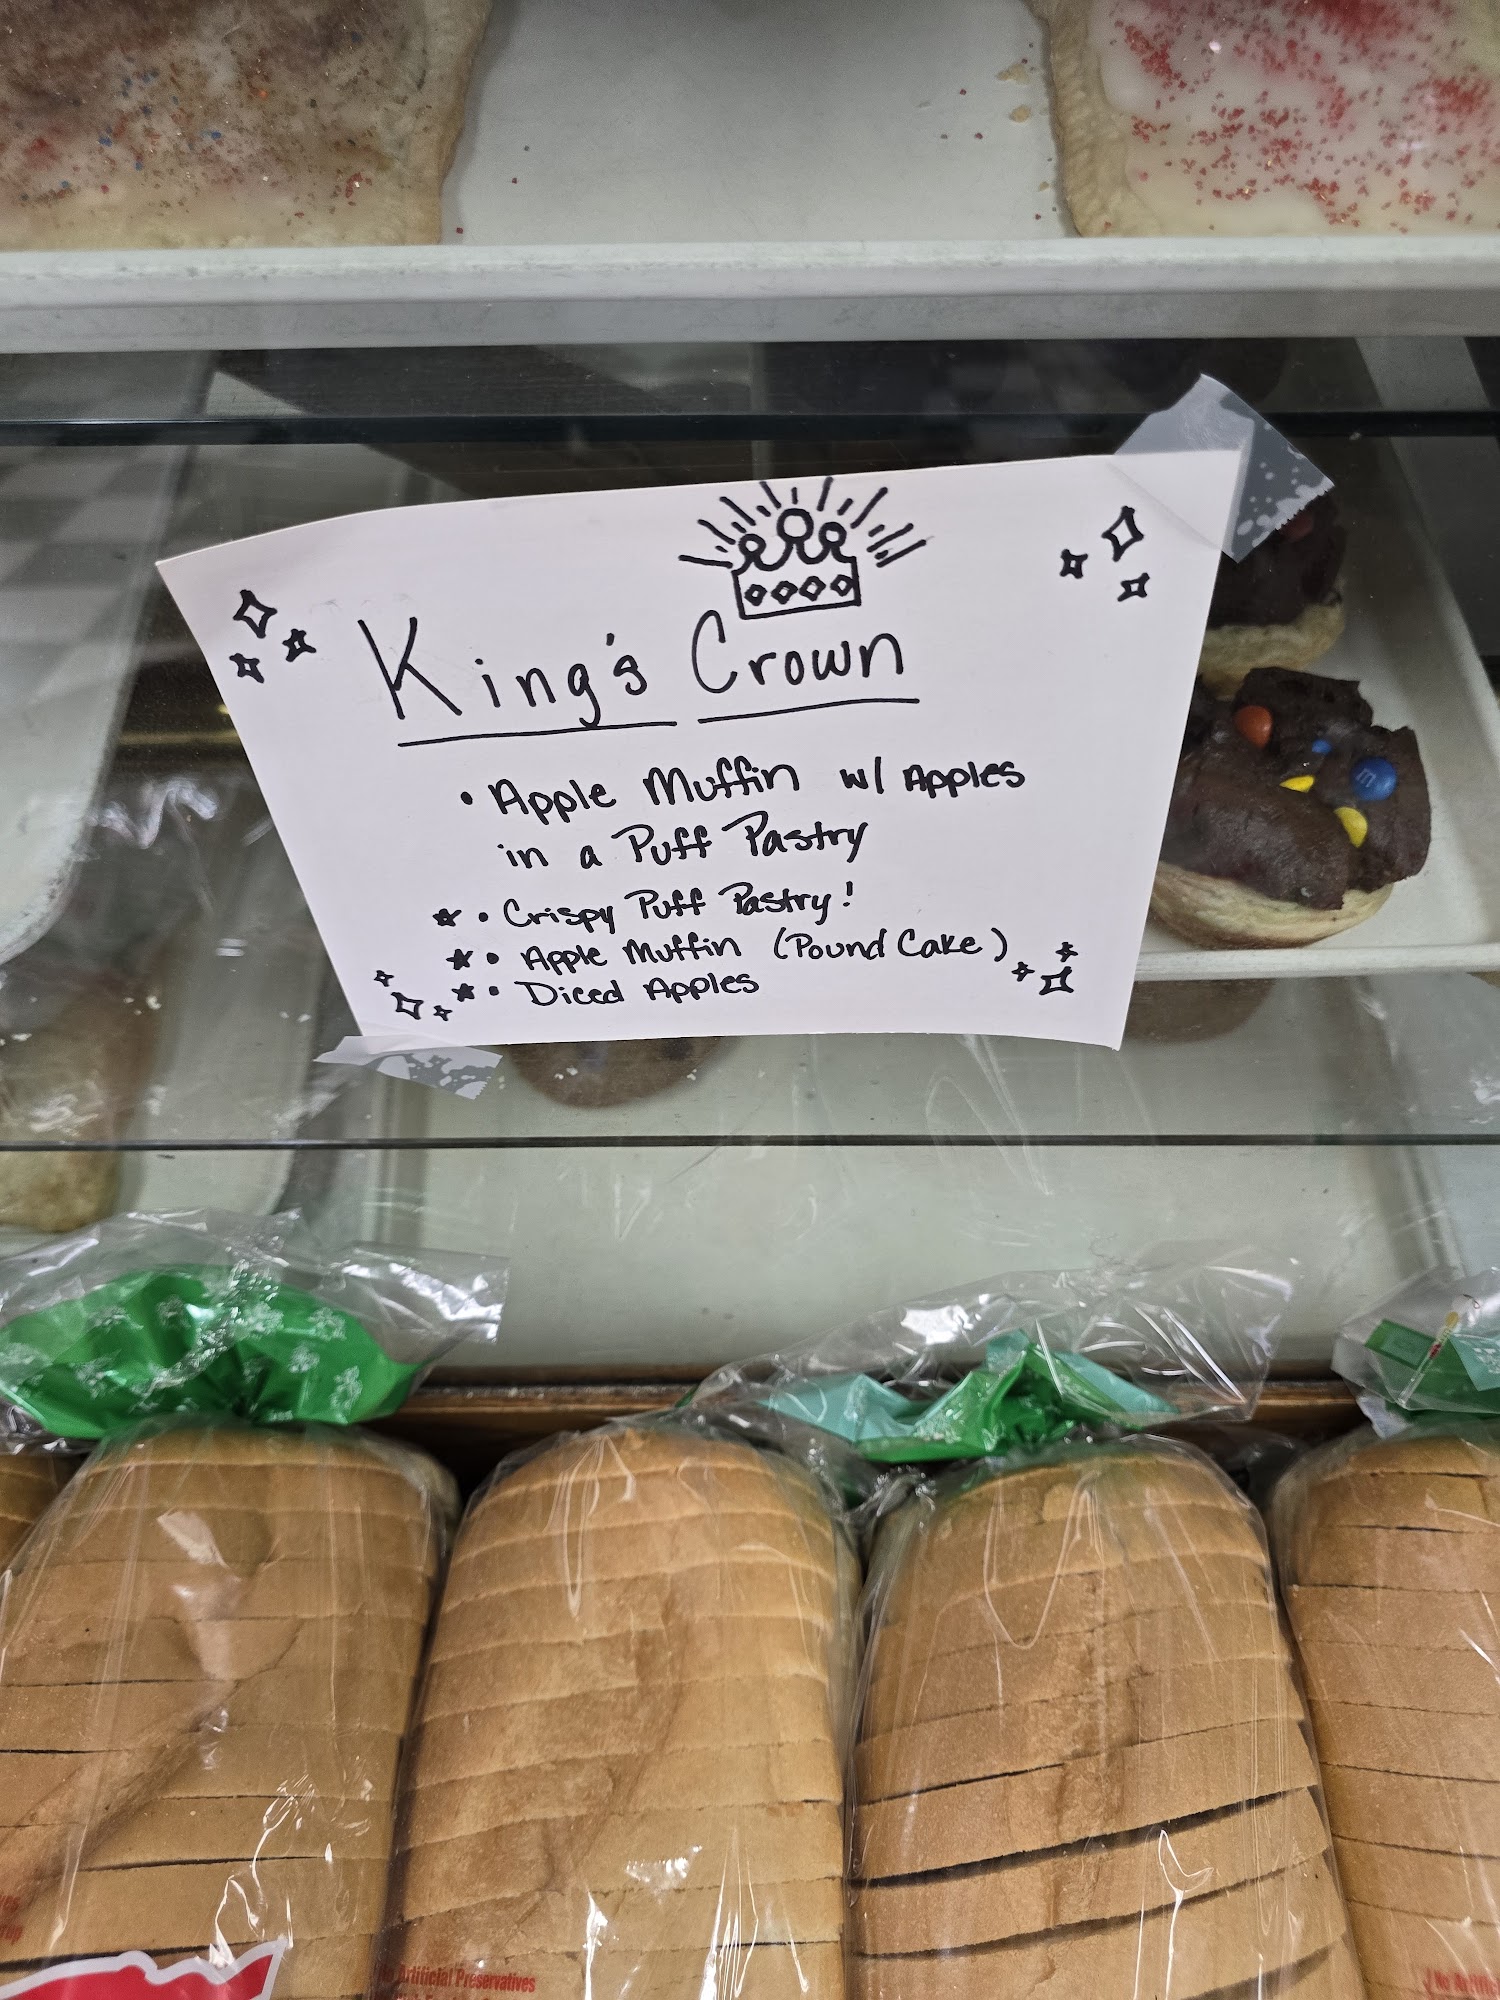 King's Crown
• Apple Muffin w/ Apples
in a Puff Pastry
★ • Crispy Puff Pastry!
★ • Apple Muffin (Pound Cake)
★ • Diced Apples
m
No Artificial Preservatives
No Artific